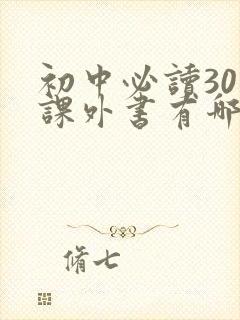 初中必讀30
課外書有哪
脩七